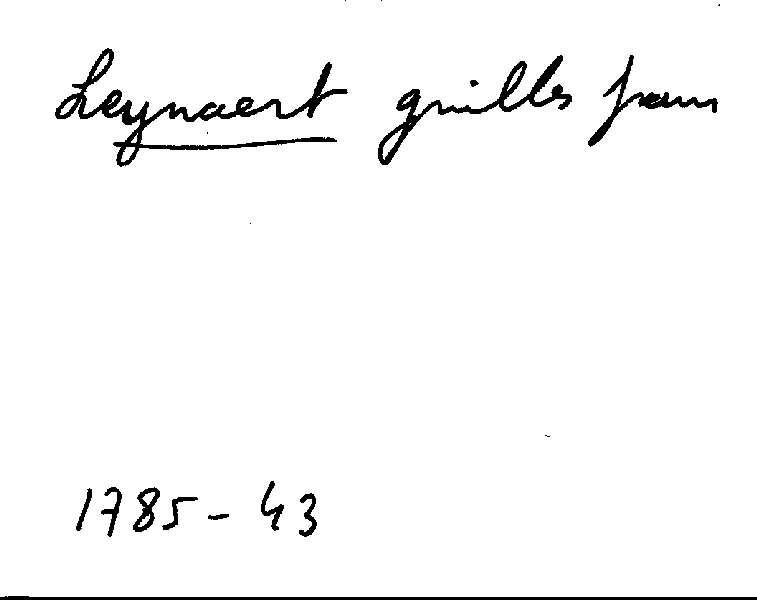 Leynaert guilles frans
1785 - 43